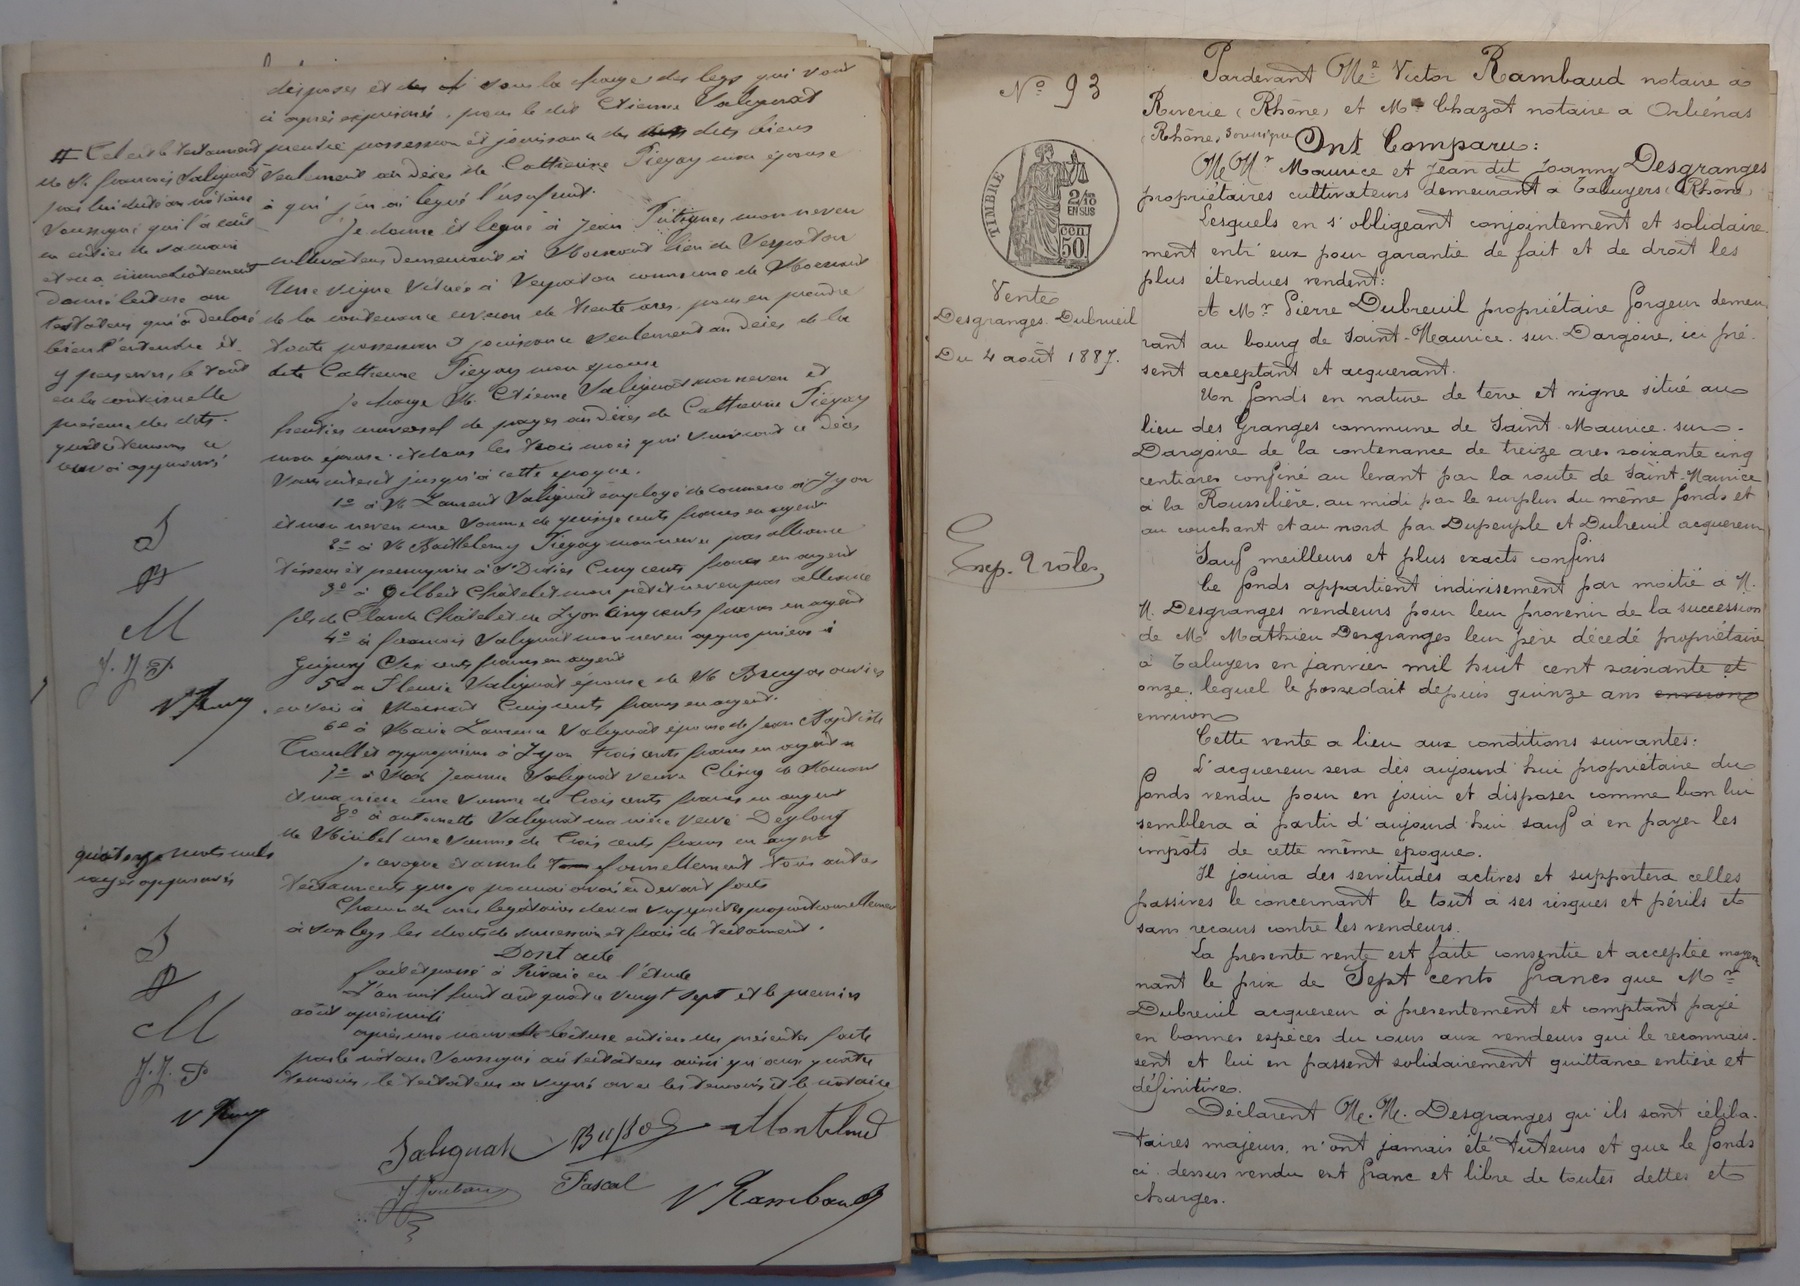 disposer et sous la charge des legs qui vont
ci après exprimés, pour le dit Etienne Salignat
prendre possession et jouissance des dits biens
seulement au décès de Catherine Piégay mon épouse
à qui j'en ai légué l'usufruit.
Je donne et lègue à Jean mon neveu
cultivateur demeurant à Mornant lieu de
Une vigne située à commune de Mornant
de la contenance environ de trente ares, pour en prendre
toute possession et jouissance seulement au décès de la
dite Catherine Piégay mon épouse
Je charge Mr Etienne Salignat mon neveu et
héritier universel de payer au décès de Catherine Piégay
mon épouse et dans les trois mois qui suivront ce décès
sans intérêt jusqu'à cette époque.
1o à Mr Laurent Salignat employé de commerce à Lyon
et mon neveu une somme de quinze cents francs en argent
2o à Mr Barthélemy Piégay mon neveu par alliance
à St Didier Cinq cents francs en argent
3o à Gilbert Châtelet mon petit neveu par alliance
fils de Claude Châtelet de Lyon cinq cents francs en argent
4o à francois Salignat mon neveu
cents francs en argent
5o a Fleurie Salignat épouse de Mr Bruyas
à Mornant Cinq cents francs en argent.
6o à Marie Laurence Salignat épouse de Jean Baptiste
à Lyon trois cents francs en argent
7o à Jeanne Salignat veuve de Mornant
et ma nièce une somme de trois cents francs en argent
8o à antoinette Salignat ma nièce veuve
de une somme de trois cents francs en argent
Je revoque et annule formellement tous autres
testaments que je pourrai avoir ci devant faits
Chacun de mes légataires devra supporter proportionnellement
à son legs les droits de succession et frais de testament.
Dont acte
fait et passé à Riverie en l'étude
L'an mil huit cent quatre vingt sept et le premier
août après midi
après une nouvelle lecture entière des présentes faite
par le notaire soussigné au testateur ainsi qu'aux quatre
témoins, le testateur a signé avec les témoins et le notaire
Salignat
Montelud
Pascal
V Rambaud
Tel est le testament
de Mr francois Salignat
par lui dicté au notaire
soussigné qui l'a écrit
en entier de sa main
et en a immédiatement
donné lecture au
testateur qui a declaré
bien l'entendre et
y perseverer, le tout
en la continuelle
présence des dits
quatre témoins ce
renvoi approuvé
M
J. J. P
quatorze mots nuls
rayés approuvés
M
J. J. P
No 93
TIMBRE
2/10
EN SUS
cen
50
Vente
Desgranges. Dubrueil
Du 4 août 1887.
Exp. 2 rôles
Pardevant Me Victor Rambaud notaire à
Riverie (Rhône) et Me Chazot notaire a Orliénas
(Rhône) soussignés Ont Comparu:
M Mrs Maurice et Jean dit Joanny Desgranges
propriétaires cultivateurs demeurant à Taluyers (Rhône)
Lesquels en s'obligeant conjointement et solidaire
ment entr' eux pour garantie de fait et de droit les
plus étendues vendent:
A Mr Pierre Dubreuil propriétaire forgeur demeu
rant au bourg de Saint-Maurice. sur. Dargoire, ici pré-
sent acceptant et acquerant.
Un fonds en nature de terre et vigne situé au
lieu des Granges commune de Saint Maurice. sur -
Dargoire de la contenance de treize ares soixante cinq
centiares confiné au levant par la route de Saint-Maurice
à la Roussilière, au midi par le surplus du même fonds et
au couchant et au nord par Dupeuple et Dubreuil acquereur
Sauf meilleurs et plus exacts confins
Ce fonds appartient indivisement par moitié à M.
M. Desgranges vendeurs pour leur provenir de la succession
de Mr Mathieu Desgranges leur père décédé propriétaire
à Taluyers en janvier mil huit cent soixante et
onze, lequel le possedait depuis quinze ans environ
environ
Cette vente a lieu aux conditions suivantes:
L'acquereur sera dès aujourd'hui propriétaire du
fonds vendu pour en jouir et disposer comme bon lui
semblera à partir d'aujourd'hui sauf à en payer les
impôts de cette même epoque.
Il jouira des servitudes actives et supportera celles
passives le concernant le tout à ses risques et périls et
sans recours contre les vendeurs.
La présente vente est faite consentie et acceptée moyen
nant le prix de Sept cents francs que Mr
Dubreuil acquereur à presentement et comptant payé
en bonnes espèces du cours aux vendeurs qui le reconnais-
sent et lui en passent solidairement quittance entière et
définitive.
Déclarent M. M. Desgranges qu'ils sont céliba-
taires majeurs, n'ont jamais été tuteurs et que le fonds
ci-dessus vendu est franc et libre de toutes dettes et
charges.